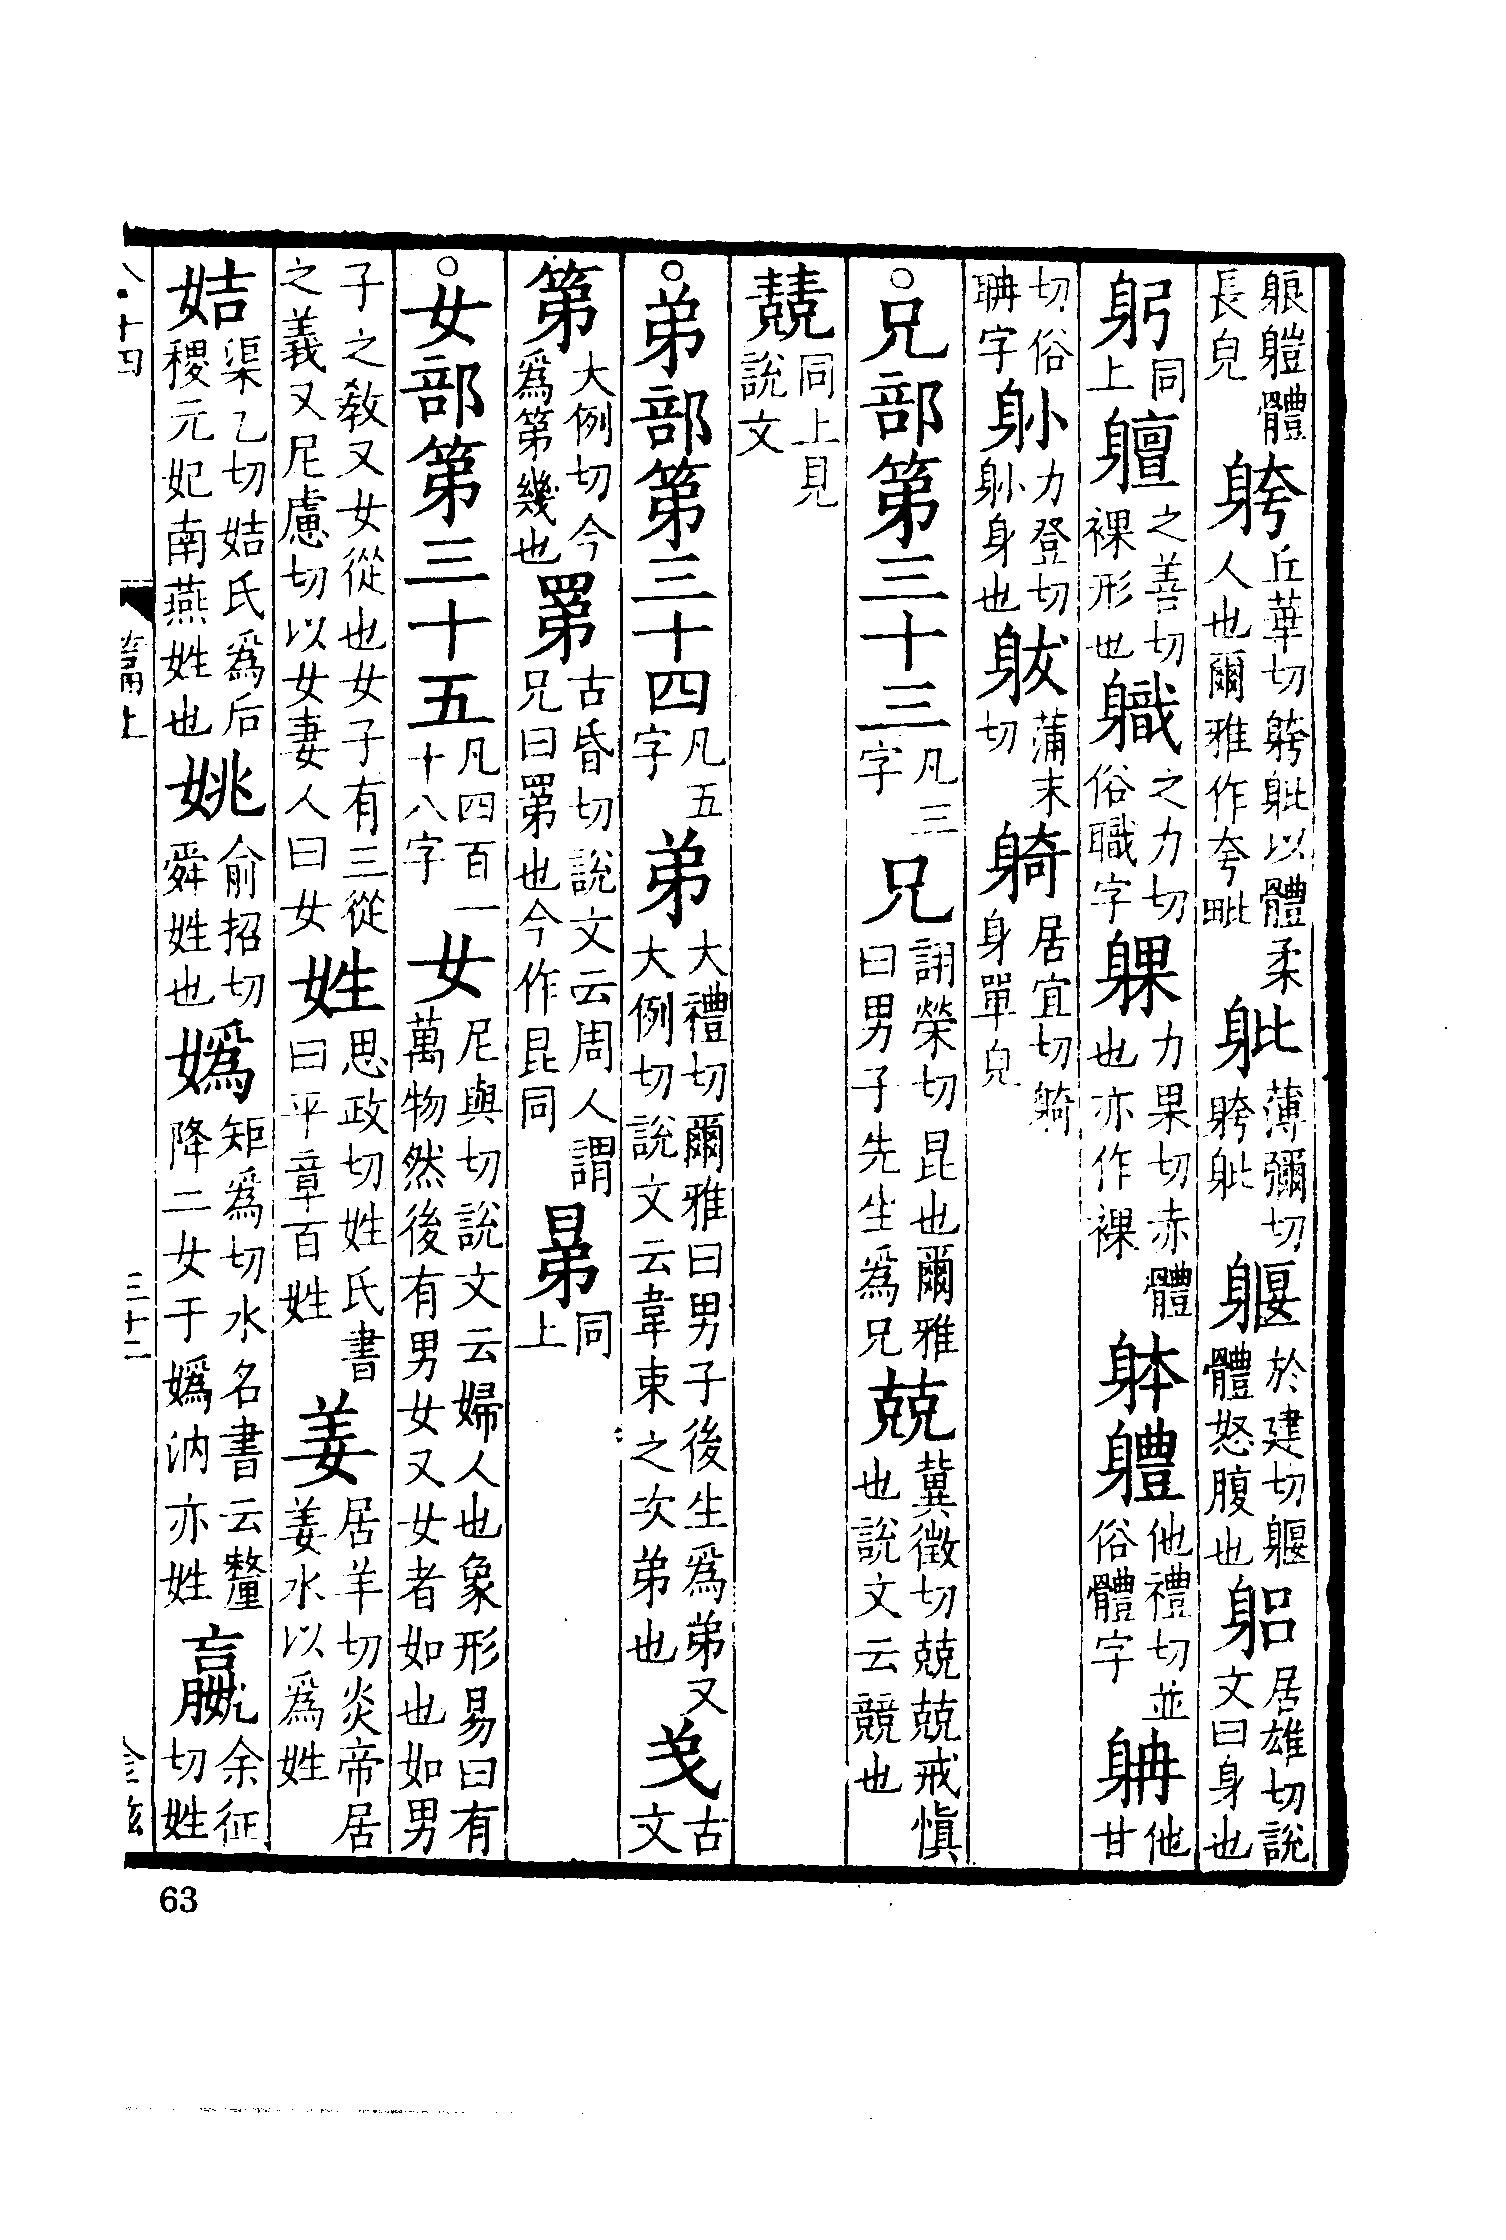 躴躿體長皃 躿 丘華切躿躮以體柔人也爾雅作夸毗 躮 薄彌切躿躮 躽 於建切躽體怒腹也 躳 居雄切說文曰身也
躬 同上 䡀 之善切裸形也 軄 之力切俗職字 躶 力果切赤體也亦作裸 躰軆 他禮切並俗體字 𨈴 他甘
切俗聃字 力登切身也 蒲末切 躸 居宜切躸身單皃
○兄部第三十三 凡三字 兄 詡榮切昆也爾雅曰男子先生爲兄 兢 冀徵切兢兢戒愼也說文云競也
𠒎 同上見說文
○弟部第三十四 凡五字 弟 大禮切爾雅曰男子後生爲弟又大例切說文云韋束之次弟也 𢎨 古文
第 大例切今爲第幾也 𦋺 古昏切說文云周人謂兄曰𦋺也今作昆同 同上
○女部第三十五 凡四百一十八字 女 尼與切說文云婦人也象形易曰有萬物然後有男女又女者如也如男
子之教又女從也女子有三從之義又尼慮切以女妻人曰女 姓 思政切姓氏書曰平章百姓 姜 居羊切炎帝居姜水以爲姓
姞 渠乙切姞氏爲后稷元妃南燕姓也 姚 俞招切舜姓也 嬀 矩爲切水名書云釐降二女于嬀汭亦姓 嬴 余征切姓
篇上
三十二
63